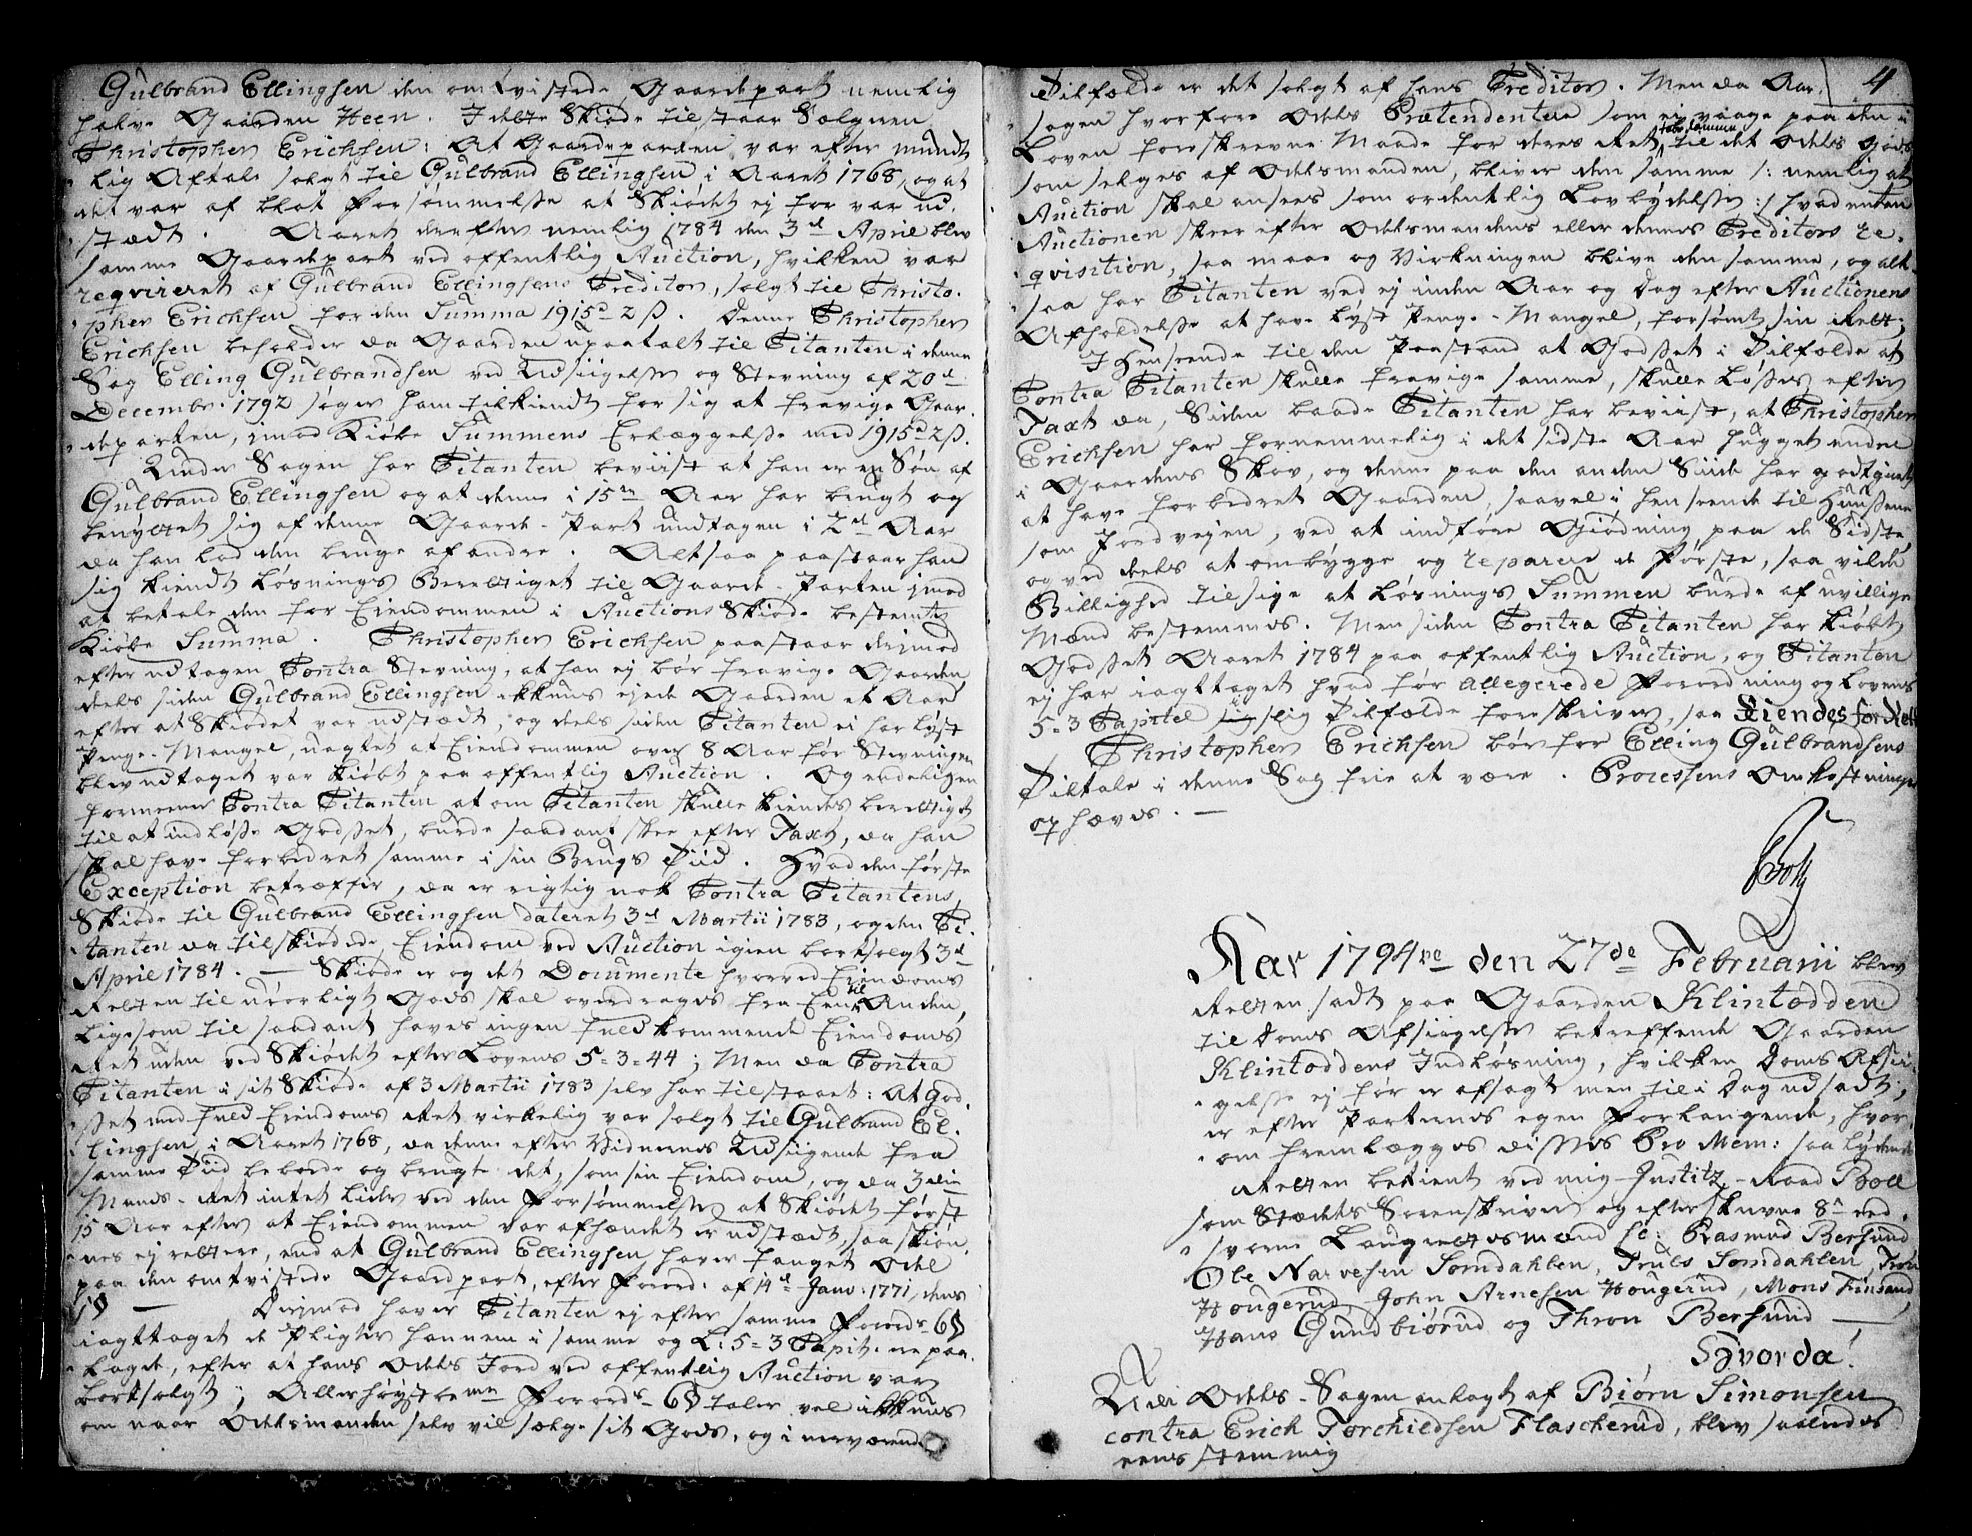 Gulbrand Ellingsen den omtvistede Gaardepart nemlig
halve Gaarden Heen. I dette Skiøde tilstaar Sælgeren
Christopher Erichsen: At Gaardeparten var efter mundt
lig Aftale solgt til Gulbrand Ellingsen i Aaret 1768, og at
det var af blot Forsømmelse at Skiødet ej før var ud
stædt. Aaret derefter nemlig 1784 den 3de April blev
samme Gaardepart ved offentlig Auction, hvilken var
reqvireret af Gulbrand Ellingsens Creditor, solgt til Christo-
pher Erichsen for den Summa 1915 rd 2 ß. Denne Christopher
Erichsen beholder da Gaarden upaatalt til Citanten i denne
Sag Elling Gulbrandsen ved Udsiigelse og Stevning af 20de
December 1792 søger ham tilkiendt for sig at fravige Gaar-
departen, imod Kiøbe Summens Erlæggelse med 1915 rd 2 ß.
Under Sagen har Citanten beviist at han er en Søn af
Gulbrand Ellingsen og at denne i 15n Aar har brugt og
benyttet sig af denne Gaarde-Part undtagen i 2de Aar
da han lod den bruge af andre. Altsaa paastaar han
sig kiendt Løsnings Berettiget til Gaarde-Parten imod
at betale den for Eiendommen i Auctions Skiøde bestemte
Kiøbe Summa. Christopher Erichsen paastaar derimod
efter udtagen Contra Stevning, at han ej bør fravige Gaarden
deels siden Gulbrand Ellingsen ikkuns ejede Gaarden et Aar
efter at Skiødet var udstædt, og deels siden Citanten ei har lyst
Penge-Mangel, uagtet at Eiendommen over 8 Aar før Stevningen
blev udtaget var kiøbt paa offentlig Auction. Og endeligen
formener Contra Citanten at om Citanten skulle kiendes berettiget
til at indløse Godset, burde saadant skee efter Taxt, da han
skal have forbedret samme i sin Brugs Tiid. Hvad den første
Exception betræffer, da er rigtig nok Contra Citantens
Skiøde til Gulbrand Ellingsen dateret 3de Martii 1783, og den Ci-
tanten da tilskiødede Eiendom ved Auction igien bortsolgt 3de
April 1784. — Skiøde er og det Documente hvorved Eiendoms
Retten til urørligt Gods skal overdrages fra Een til Anden,
ligesom til saadant haves ingen fuldkommende Eiendoms
Ret uden ved Skiødet efter Lovens 5-3-44; Men da Contra
Citanten i sit Skiøde af 3 Martii 1783 selv har tilstaaet: At God-
set med fuld Eiendoms Ret virkelig var solgt til Gulbrand El-
lingsen i Aaret 1768, da denne efter Vidnernes Udsigende fra
samme Tiid beboede og brugte det, som sin Eiendom, og da 3die
Mands-Ret intet lider ved den Forsømmelse at Skiødet først
15 Aar efter at Eiendommen var afhændet er udstædt, saa skiøn-
nes ej rettere, end at Gulbrand Ellingsen haver fanget Odel
paa den omtvistede Gaardpart, efter Forord: af 14de Janv: 1771, dens
6 § — Derimod haver Citanten ej efter samme Forords 6 §
iagttaget de Pligter hannem i samme og L: 5-3 Capit: ere paa-
lagde, efter at hans Odels Jord ved offentlig Auction var
bortsolgt; Allerhøystbeme Forords 6 § taler vel ikkuns
om naar Odelsmanden selv vil sælge sit Gods, og i nærværende
4
Tilfælde er det solgt af hans Creditor. Men da Aar-
sagen hvorfore Odels Prætendentere som ej vaage paa den i
Loven foreskrevne Maade for deres Ret, tabe samme til det Odels Gods
som selges af Odelsmanden, bliver den samme /: nemlig at
Auction skal ansees som ordentlig Lovbydelse :/ hvad enten
Auctionen skeer efter Odelsmandens eller dennes Creditors re-
qvisition, saa maae og Virkningen blive den samme, og alt-
saa har Citanten ved ej inden Aar og Dag efter Auctionens
Afholdelse at have lyst Penge-Mangel, forsømt sin Ret;
I Henseende til den Paastand at Godset i Tilfælde at
Contra Citanten skulle fravige samme, skulle løses efter
Taxt da, Siden baade Citanten har beviist, at Christopher
Erichsen har fornemmelig i det sidste Aar hugget endeel
i Gaardens Skov, og denne paa den anden Siide har godtgiort
at have forbedret Gaarden, saavel i henseende til Huusene
som Jordvejen, ved at indføre Giødning paa de Sidste
og ved deels at ombygge og reparere de Første, saa vilde
Billighed tilsige at Løsnings Summen burde af uvillige
Mænd bestemmes. Men siden Contra Citanten har kiøbt
Godset Aaret 1784 paa offentlig Auction, og Citanten
ej har iagttaget hvad før allegerede Forordning og Lovens
5-3 Capitel i slig Tilfælde foreskriver, saa Kiendes for Rett
Christopher Erichsen bør for Elling Gulbrandsens
Tiltale i denne Sag frie at være. Processens Omkostninger
ophæves. —
Boll
Aar 1794ve den 27de Februarii blev
Retten sadt paa Gaarden Klintodden
til Doms Afsigelse betreffende Gaarden
Klintoddens Indløsning, hvilken Doms Afsii-
gelse ej før er afsagt men til i Dag udsadt,
er efter Parternes egen Forlangende, hvor-
om fremlægges disses Pro Mem: saa lydende
Retten betient ved mig Justitz-Raad Boll
som Stædets Sorenskriver og efterskrevne 8te eed-
svorne Laugrettesmænd sc: Rasmus Bersund
Ole Narvesen Somdahlen, Truls Somdahlen, Tron
Hougerud, John Arnesen Hougerud, Mons Finsand,
Hans Gundbiørud og Thron Bersund —
Hvorda!
Udi Odels-Sagen anlagt af Biørn Simonsen
contra Erich Torchildsen Flascherud, blev saaledes
eenstemmig